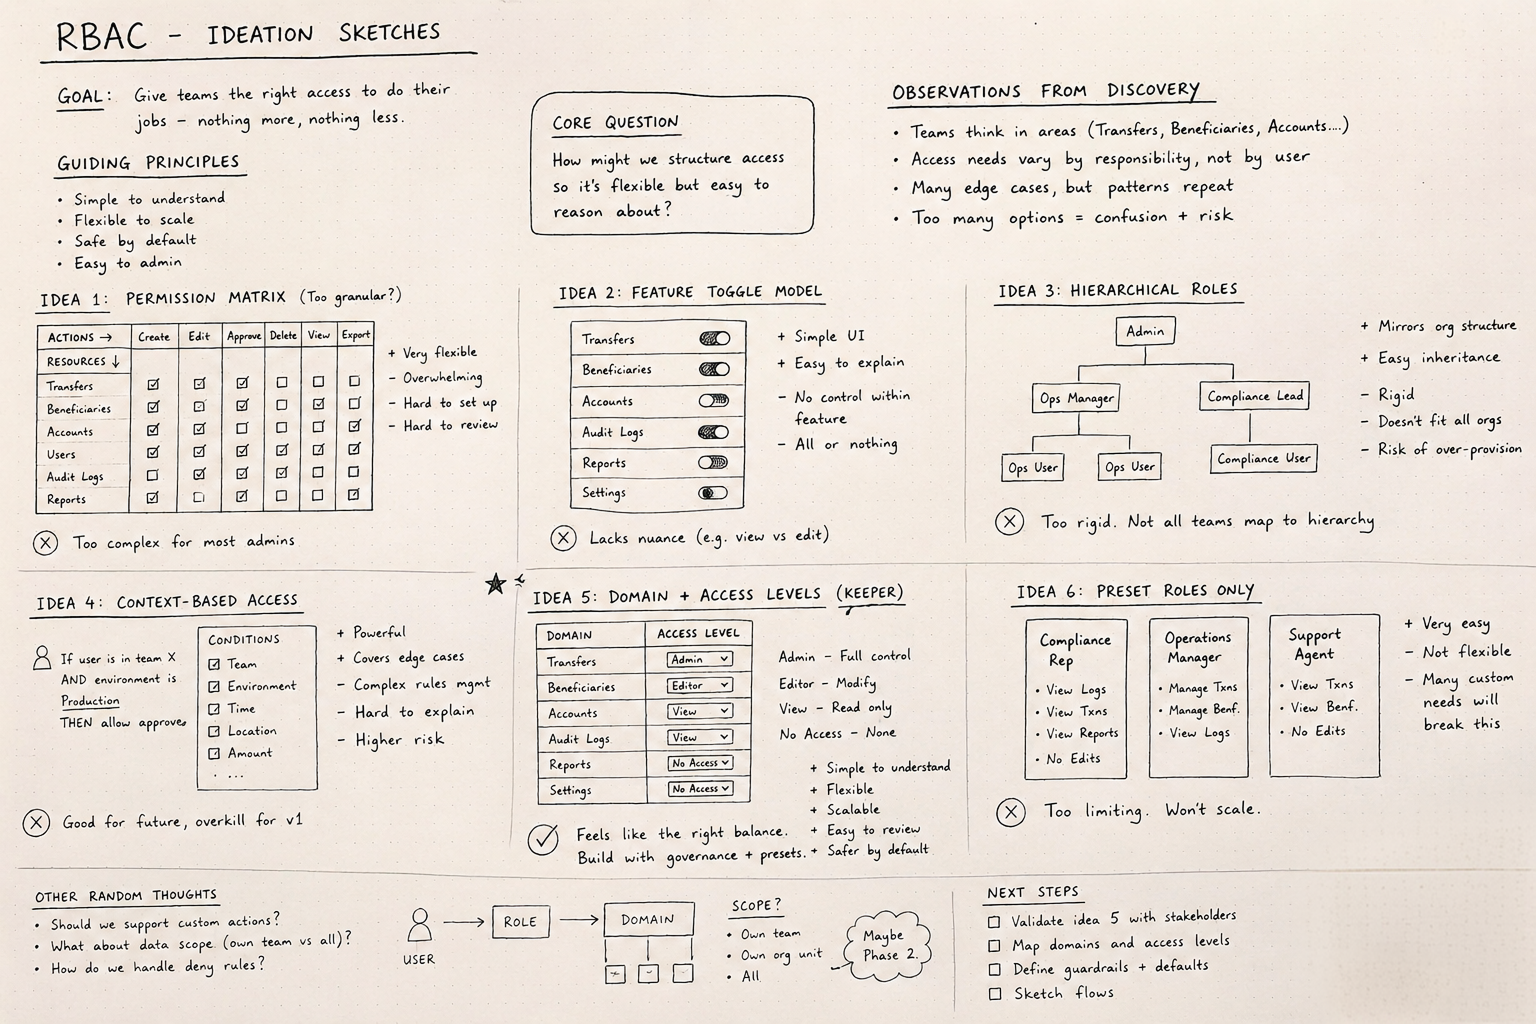 RBAC – IDEATION SKETCHES
GOAL: Give teams the right access to do their
jobs – nothing more, nothing less.
GUIDING PRINCIPLES
• Simple to understand
• Flexible to scale
• Safe by default
• Easy to admin
CORE QUESTION
How might we structure access
so it's flexible but easy to
reason about?
OBSERVATIONS FROM DISCOVERY
• Teams think in areas (Transfers, Beneficiaries, Accounts....)
• Access needs vary by responsibility, not by user
• Many edge cases, but patterns repeat
• Too many options = confusion + risk
IDEA 1: PERMISSION MATRIX (Too granular?)
ACTIONS → Create Edit Approve Delete View Export
RESOURCES ↓
Transfers
Beneficiaries
Accounts
Users
Audit Logs
Reports
+ Very flexible
– Overwhelming
– Hard to set up
– Hard to review
Too complex for most admins
IDEA 2: FEATURE TOGGLE MODEL
Transfers
Beneficiaries
Accounts
Audit Logs
Reports
Settings
+ Simple UI
+ Easy to explain
– No control within
feature
– All or nothing
Lacks nuance (e.g. view vs edit)
IDEA 3: HIERARCHICAL ROLES
Admin
Ops Manager Compliance Lead
Ops User Ops User Compliance User
+ Mirrors org structure
+ Easy inheritance
– Rigid
– Doesn't fit all orgs
– Risk of over-provision
Too rigid. Not all teams map to hierarchy
IDEA 4: CONTEXT-BASED ACCESS
If user is in team X
AND environment is
Production
THEN allow approve
CONDITIONS
Team
Environment
Time
Location
Amount
. ...
+ Powerful
+ Covers edge cases
– Complex rules mgmt
– Hard to explain
– Higher risk
Good for future, overkill for v1
IDEA 5: DOMAIN + ACCESS LEVELS (KEEPER)
DOMAIN ACCESS LEVEL
Transfers Admin
Beneficiaries Editor
Accounts View
Audit Logs View
Reports No Access
Settings No Access
Admin – Full control
Editor – Modify
View – Read only
No Access – None
+ Simple to understand
+ Flexible
+ Scalable
+ Easy to review
+ Safer by default
Feels like the right balance.
Build with governance + presets.
IDEA 6: PRESET ROLES ONLY
Compliance
Rep
• View Logs
• View Txns
• View Reports
• No Edits
Operations
Manager
• Manage Txns
• Manage Benf.
• View Logs
Support
Agent
• View Txns
• View Benf.
• No Edits
+ Very easy
– Not flexible
– Many custom
needs will
break this
Too limiting. Won't scale.
OTHER RANDOM THOUGHTS
• Should we support custom actions?
• What about data scope (own team vs all)?
• How do we handle deny rules?
USER
ROLE
DOMAIN
SCOPE?
• Own team
• Own org unit
• All
Maybe
Phase 2.
NEXT STEPS
Validate idea 5 with stakeholders
Map domains and access levels
Define guardrails + defaults
Sketch flows